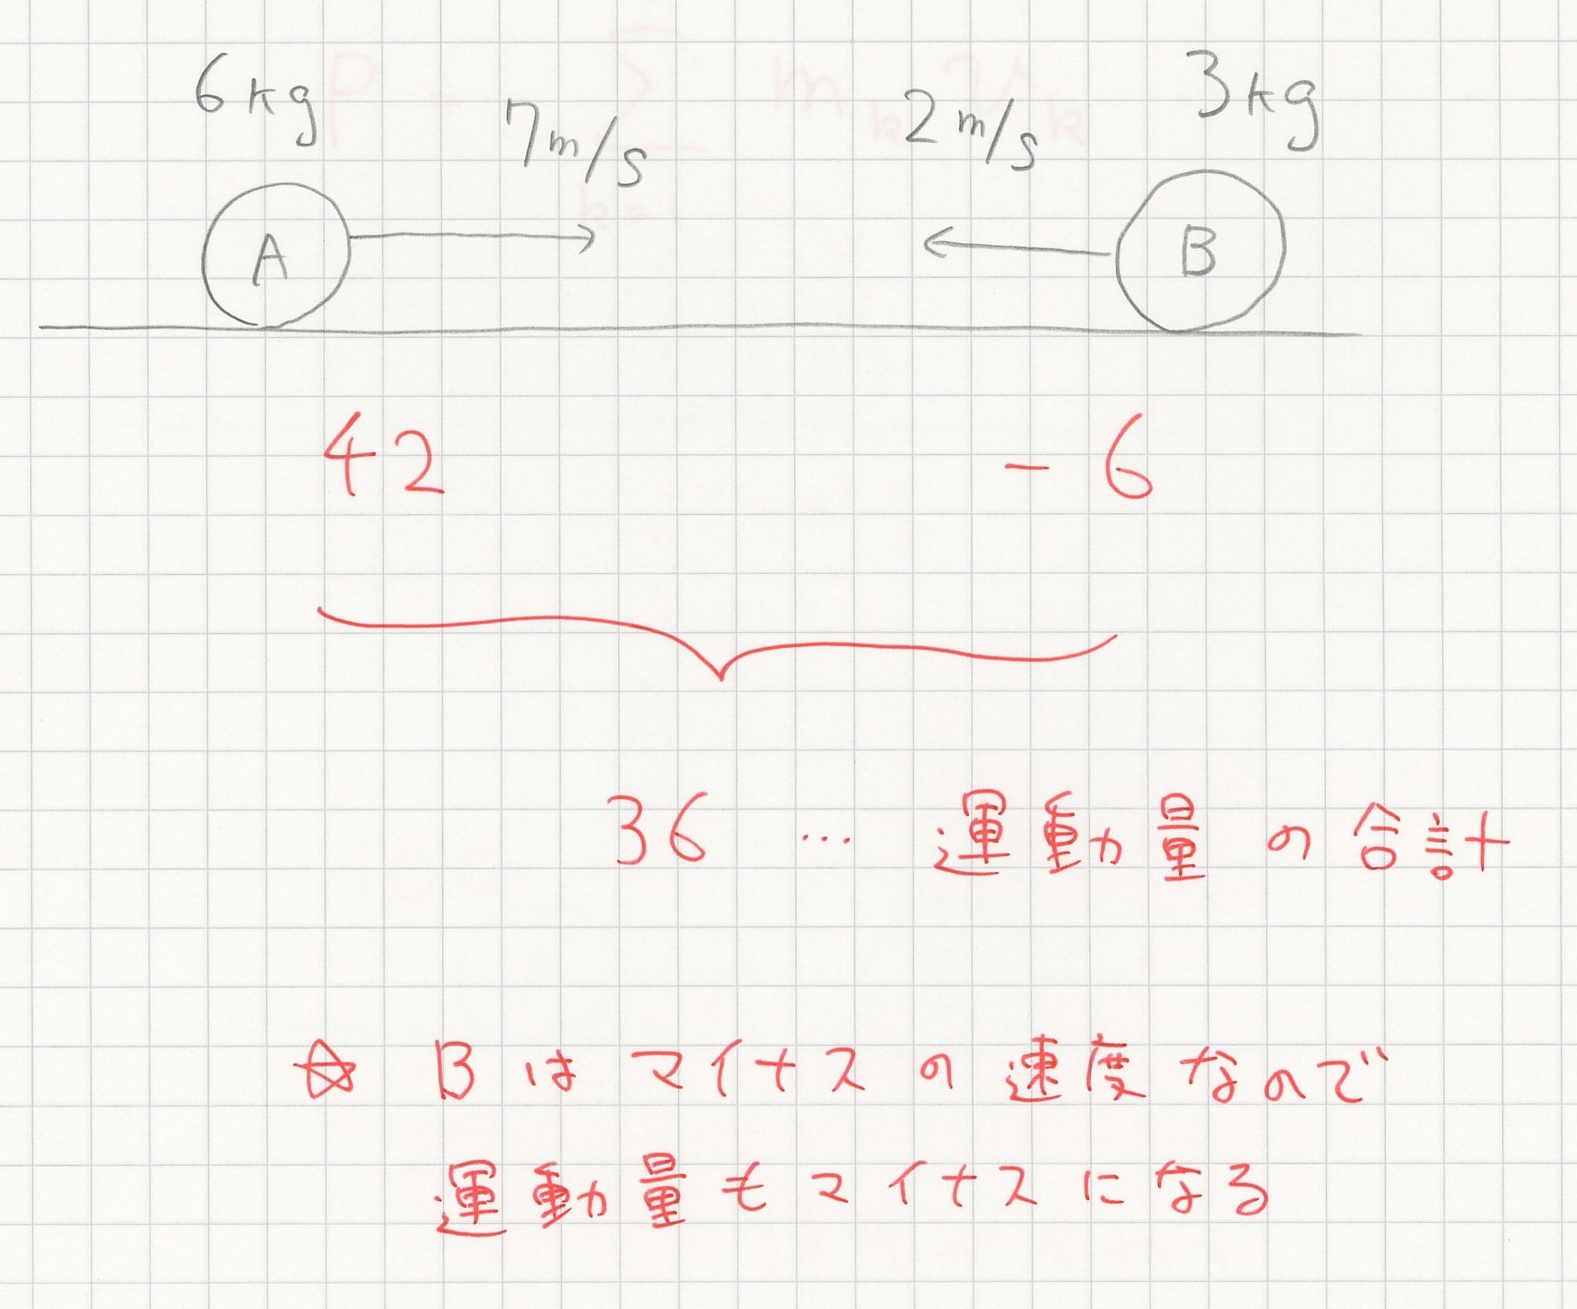 6kg 7m/s 2m/s 3kg
A B
42 -6
36 … 運動量の合計
☆ Bはマイナスの速度なので
運動量もマイナスになる